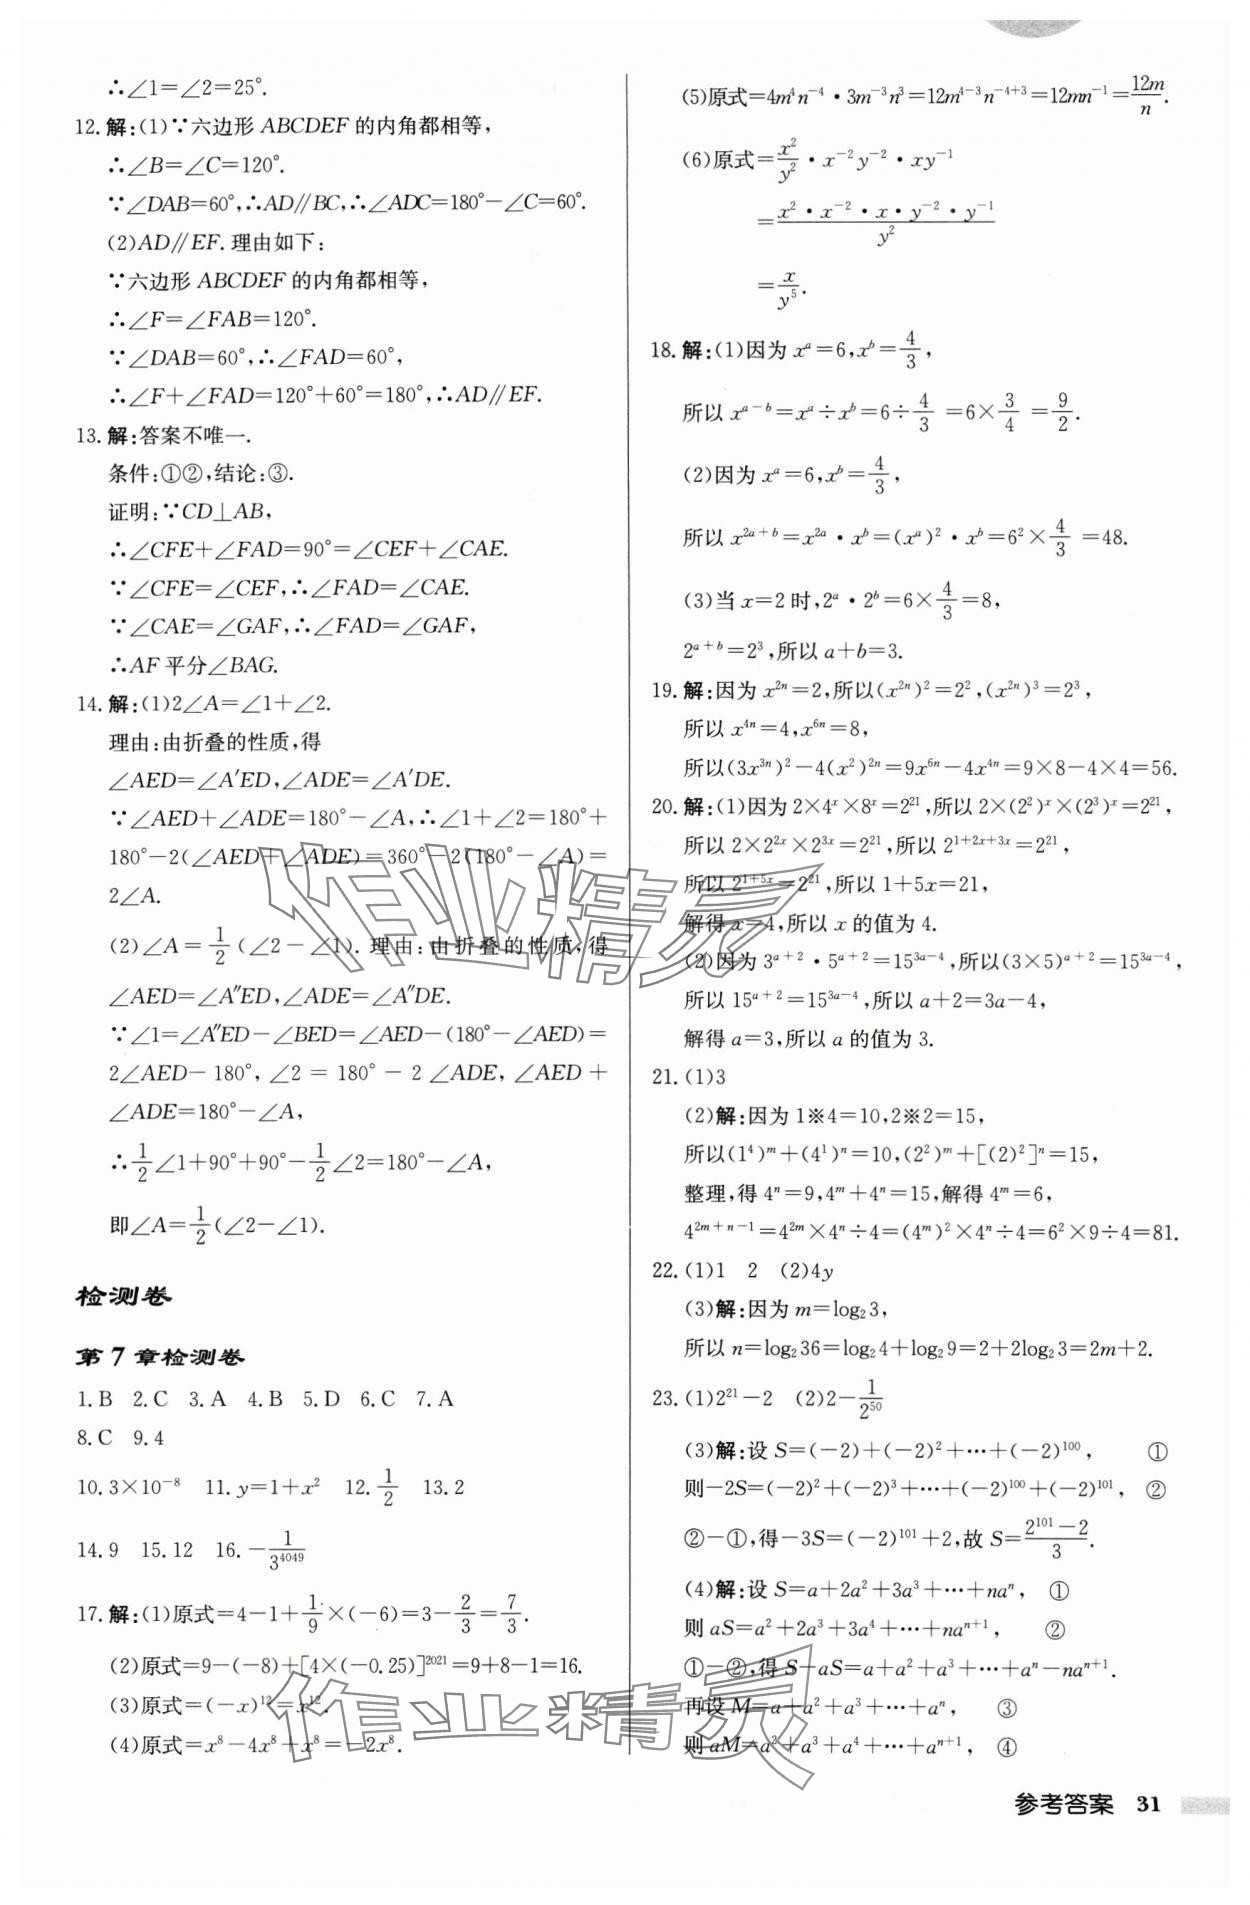 ∴∠1=∠2=25°.
12.解:(1)∵六边形 ABCDEF 的内角都相等,
∴∠B=∠C=120°.
∵∠DAB=60°,∴AD∥BC,∴∠ADC=180°−∠C=60°.
(2)AD∥EF.理由如下:
∵六边形 ABCDEF 的内角都相等,
∴∠F=∠FAB=120°.
∵∠DAB=60°,∴∠FAD=60°,
∴∠F+∠FAD=120°+60°=180°,∴AD∥EF.
13.解:答案不唯一.
条件:①②,结论:③.
证明:∵CD⊥AB,
∴∠CFE+∠FAD=90°=∠CEF+∠CAE.
∵∠CFE=∠CEF,∴∠FAD=∠CAE.
∵∠CAE=∠GAF,∴∠FAD=∠GAF,
∴AF 平分∠BAG.
14.解:(1)2∠A=∠1+∠2.
理由:由折叠的性质,得
∠AED=∠A′ED,∠ADE=∠A′DE.
∵∠AED+∠ADE=180°−∠A,∴∠1+∠2=180°+
180°−2(∠AED+∠ADE)=360°−2(180°−∠A)=
2∠A.
(2)∠A=1/2(∠2−∠1).理由:由折叠的性质,得
∠AED=∠A″ED,∠ADE=∠A″DE.
∵∠1=∠A″ED−∠BED=∠AED−(180°−∠AED)=
2∠AED−180°,∠2=180°−2∠ADE,∠AED+
∠ADE=180°−∠A,
∴1/2∠1+90°+90°−1/2∠2=180°−∠A,
即∠A=1/2(∠2−∠1).
检测卷
第 7 章检测卷
1.B 2.C 3.A 4.B 5.D 6.C 7.A
8.C 9.4
10.3×10⁻⁸ 11.y=1+x² 12.1/2 13.2
14.9 15.12 16.−1/3⁴⁰⁴⁹
17.解:(1)原式=4−1+1/9×(−6)=3−2/3=7/3.
(2)原式=9−(−8)+[4×(−0.25)]²⁰²¹=9+8−1=16.
(3)原式=(−x)¹²=x¹².
(4)原式=x⁸−4x⁸+x⁸=−2x⁸.
(5)原式=4m⁴n⁻⁴·3m⁻³n³=12m⁴⁻³n⁻⁴⁺³=12mn⁻¹=12m/n.
(6)原式=x²/y²·x⁻²y⁻²·xy⁻¹
=x²·x⁻²·x·y⁻²·y⁻¹/y²
=x/y⁵.
18.解:(1)因为 xᵃ=6,xᵇ=4/3,
所以 xᵃ⁻ᵇ=xᵃ÷xᵇ=6÷4/3=6×3/4=9/2.
(2)因为 xᵃ=6,xᵇ=4/3,
所以 x²ᵃ⁺ᵇ=x²ᵃ·xᵇ=(xᵃ)²·xᵇ=6²×4/3=48.
(3)当 x=2 时,2ᵃ·2ᵇ=6×4/3=8,
2ᵃ⁺ᵇ=2³,所以 a+b=3.
19.解:因为 x²ⁿ=2,所以(x²ⁿ)²=2²,(x²ⁿ)³=2³,
所以 x⁴ⁿ=4,x⁶ⁿ=8,
所以(3x³ⁿ)²−4(x²)²ⁿ=9x⁶ⁿ−4x⁴ⁿ=9×8−4×4=56.
20.解:(1)因为 2×4ˣ×8ˣ=2²¹,所以 2×(2²)ˣ×(2³)ˣ=2²¹,
所以 2×2²ˣ×2³ˣ=2²¹,所以 2¹⁺²ˣ⁺³ˣ=2²¹,
所以 2¹⁺⁵ˣ=2²¹,所以 1+5x=21,
解得 x=4,所以 x 的值为 4.
(2)因为 3ᵃ⁺²·5ᵃ⁺²=15³ᵃ⁻⁴,所以(3×5)ᵃ⁺²=15³ᵃ⁻⁴,
所以 15ᵃ⁺²=15³ᵃ⁻⁴,所以 a+2=3a−4,
解得 a=3,所以 a 的值为 3.
21.(1)3
(2)解:因为 1※4=10,2※2=15,
所以(1⁴)ᵐ+(4¹)ⁿ=10,(2²)ᵐ+[(2)²]ⁿ=15,
整理,得 4ⁿ=9,4ᵐ+4ⁿ=15,解得 4ᵐ=6,
4²ᵐ⁺ⁿ⁻¹=4²ᵐ×4ⁿ÷4=(4ᵐ)²×4ⁿ÷4=6²×9÷4=81.
22.(1)1 2 (2)4y
(3)解:因为 m=log₂3,
所以 n=log₂36=log₂4+log₂9=2+2log₂3=2m+2.
23.(1)2²¹−2 (2)2−1/2⁵⁰
(3)解:设 S=(−2)+(−2)²+⋯+(−2)¹⁰⁰, ①
则−2S=(−2)²+(−2)³+⋯+(−2)¹⁰⁰+(−2)¹⁰¹, ②
②−①,得−3S=(−2)¹⁰¹+2,故 S=(2¹⁰¹−2)/3.
(4)解:设 S=a+2a²+3a³+⋯+naⁿ, ①
则 aS=a²+2a³+3a⁴+⋯+naⁿ⁺¹, ②
①−②,得 S−aS=a+a²+a³+⋯+aⁿ−naⁿ⁺¹.
再设 M=a+a²+a³+⋯+aⁿ, ③
则 aM=a²+a³+a⁴+⋯+aⁿ⁺¹, ④
参考答案 31
作业精灵
作业精灵